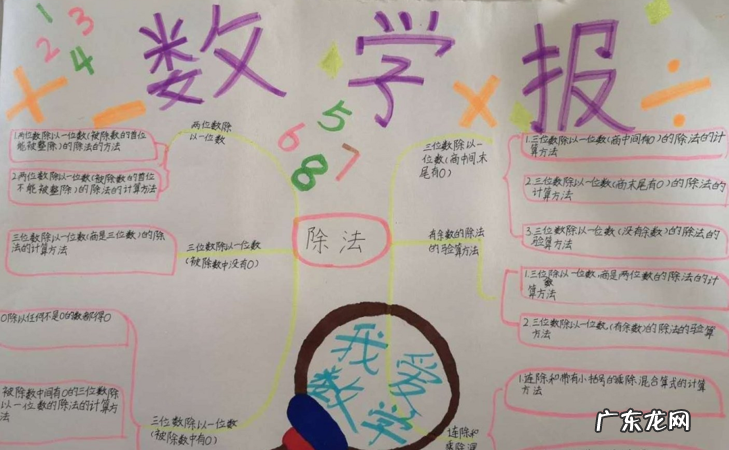 数学报
1 3
2 4
5
6 7
8
两位数除
以一位数
1.两位数除以一位数(被除数的首位
能被整除)的除法的方法
2.两位数除以一位数(被除数的首位
不能被整除)的除法的计算方法
三位数除以一位数
(被除数中没有0)
三位数除以一位数(商是三位数)的除
法的计算方法
三位数除以一位数
(被除数中有0)
0除以任何不是0的数都得0
被除数中间有0的三位数除
以一位数的除法的计算方
法
除法
三位数除以一
位数(商中间末
尾有0)
1.三位数除以一位数(商中间有0)的除法的计
算方法
2.三位数除以一位数(商末尾有0)的除法的
计算方法
3.三位数除以一位数(没有余数)的除法的
验算方法
有余数的除法
的验算方法
1.三位除以一位数,商是两位数的除法的计
数
算方法
2.三位数除以一位数,(有余数)的除法的验算
方法
连除和
1.连除和带有小括号的乘除混合算式的计算
方法
我爱
数学
广东龙网